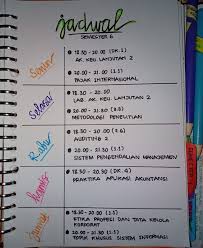 jadwal
SEMESTER 6
Senin
18.30 - 20.00 (DK.1)
AK. KEU. LANJUTAN 2
20.00 - 21.30 (2.3)
PAJAK INTERNASIONAL
Selasa
18.30 - 20.00
LAB. AK. KEU. LANJUTAN 2
20.00 - 21.30
METODOLOGI PENELITIAN
Rabu
18.30 - 20.00
AUDITING 2
20.00 - 21.30
SISTEM PENGENDALIAN MANAJEMEN
Kamis
18.30 - 20.00 (DK.4)
PRAKTIKA APLIKASI AKUNTANSI
Jumat
18.30 - 20.00
ETIKA PROFESI DAN TATA KELOLA
KORPORAT
20.00 - 21.30
TOPIK KHUSUS SISTEM INFORMASI